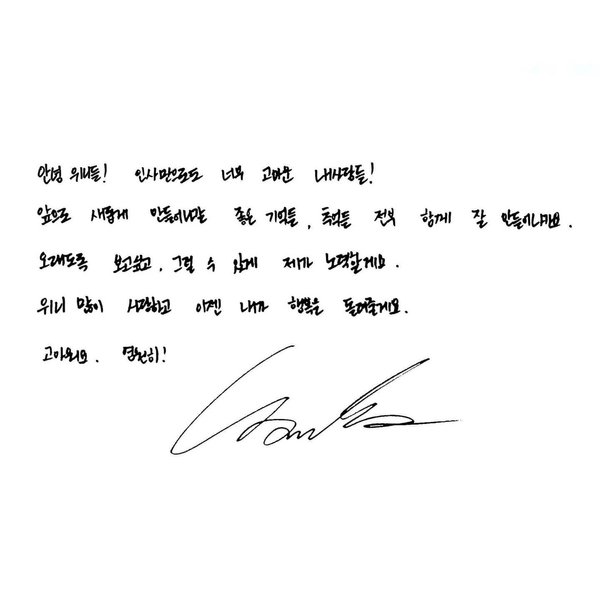 안녕 위니들! 인사만으로도 너무 고마운 내사랑들!
앞으로 새롭게 만들어나갈 좋은 기억들, 추억들 전부 함께 잘 만들어나가요.
오래도록 보고싶고, 그럴 수 있게 제가 노력할게요.
위니 많이 사랑하고 이젠 내가 행복을 돌려줄게요.
고마워요. 영원히!